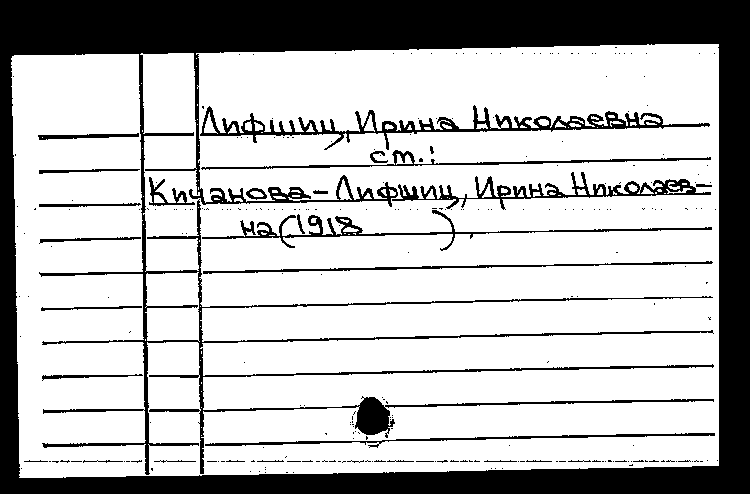 Лифшиц, Ирина Николаевна
ст.:
Кичанова-Лифшиц, Ирина Николаев-
на (1918 ).